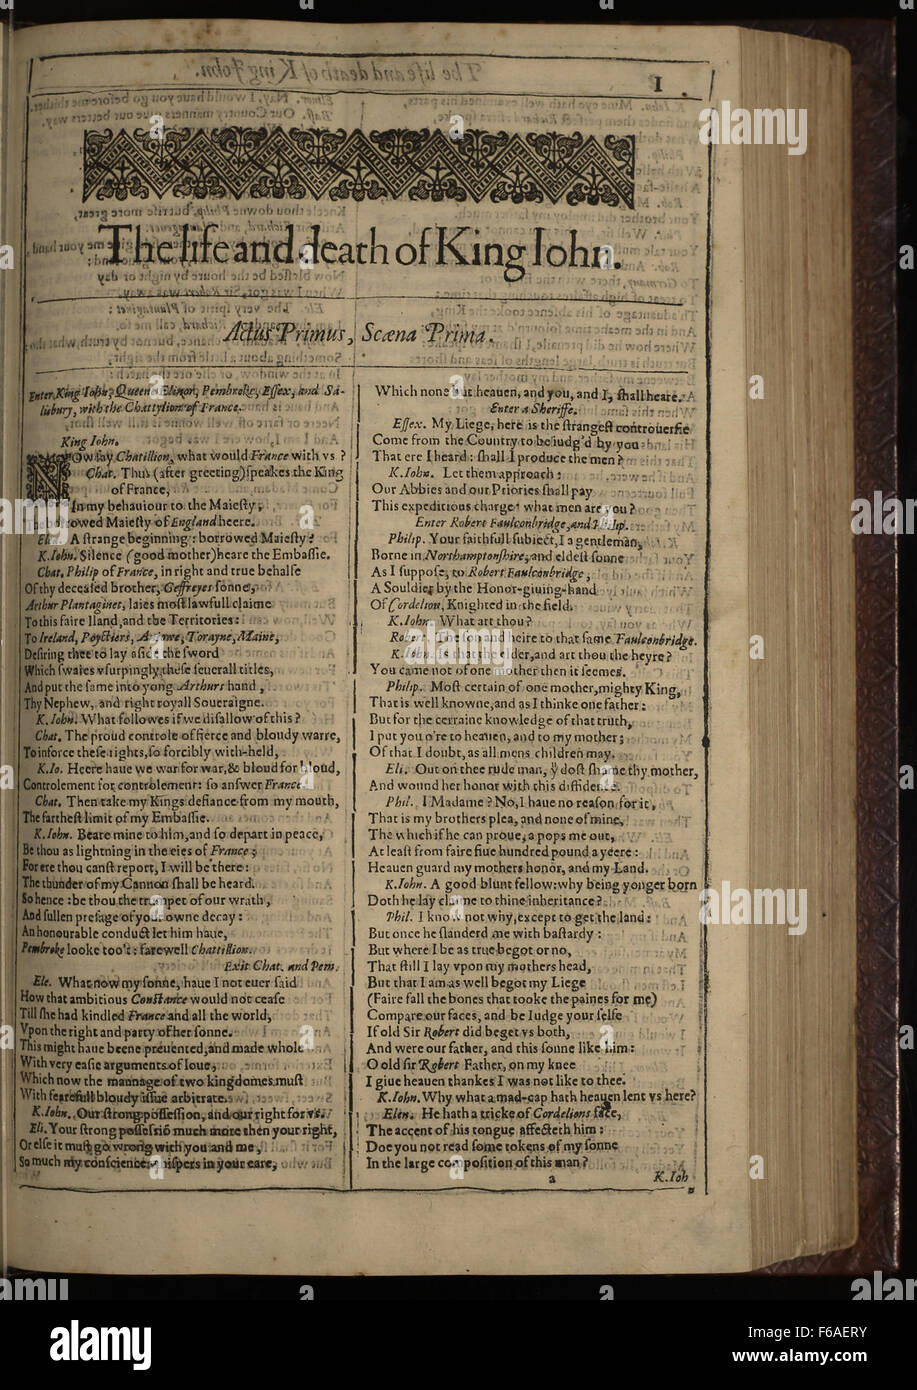 1
The life and death of King Iohn.
Actus Primus, Scæna Prima.
Enter King Iohn, Queene Elinor, Pembroke, Essex, and Sa-
lisbury, with the Chattylion of France.
King Iohn.
NOw say Chatillion, what would France with vs?
Chat. Thus (after greeting) speakes the King
of France,
In my behauiour to the Maiesty,
The borrowed Maiesty of England heere.
Ele. A strange beginning: borrowed Maiesty?
K. Iohn. Silence (good mother) heare the Embassie.
Chat. Philip of France, in right and true behalfe
Of thy deceased brother, Geffreyes sonne,
Arthur Plantaginet, laies most lawfull claime
To this faire Iland, and the Territories:
To Ireland, Poyctiers, Aniowe, Torayne, Maine,
Desiring thee to lay aside the sword
Which swaies vsurpingly these seuerall titles,
And put the same into yong Arthurs hand,
Thy Nephew, and right royall Soueraigne.
K. Iohn. What followes if we disallow of this?
Chat. The proud controle of fierce and bloudy warre,
To inforce these rights, so forcibly with-held,
K. Io. Heere haue we war for war, & bloud for bloud,
Controlement for controlement: so answer France.
Chat. Then take my Kings defiance from my mouth,
The farthest limit of my Embassie.
K. Iohn. Beare mine to him, and so depart in peace,
Be thou as lightning in the eies of France;
For ere thou canst report, I will be there:
The thunder of my Cannon shall be heard.
So hence: be thou the trumpet of our wrath,
And sullen presage of your owne decay:
An honourable conduct let him haue,
Pembroke looke too't: farewell Chattillion.
Exit Chat. and Pem.
Ele. What now my sonne, haue I not euer said
How that ambitious Constance would not cease
Till she had kindled France and all the world,
Vpon the right and party of her sonne.
This might haue beene preuented, and made whole
With very easie arguments of loue,
Which now the mannage of two kingdomes must
With fearefull bloudy issue arbitrate.
K. Iohn. Our strong possession, and our right for vs.
Eli. Your strong possessiõ much more then your right,
Or else it must go wrong with you and me,
So much my conscience whispers in your eare,
Which none but heauen, and you, and I, shall heare.
Enter a Sheriffe.
Essex. My Liege, here is the strangest controuersie
Come from the Country to be iudg'd by you
That ere I heard: shall I produce the men?
K. Iohn. Let them approach:
Our Abbies and our Priories shall pay
This expeditious charge: what men are you?
Enter Robert Faulconbridge, and Philip.
Philip. Your faithfull subiect, I a gentleman,
Borne in Northamptonshire, and eldest sonne
As I suppose, to Robert Faulconbridge,
A Souldier by the Honor-giuing-hand
Of Cordelion, Knighted in the field.
K. Iohn. What art thou?
Robert. The son and heire to that same Faulconbridge.
K. Iohn. Is that the elder, and art thou the heyre?
You came not of one mother then it seemes.
Philip. Most certain of one mother, mighty King,
That is well knowne, and as I thinke one father:
But for the certaine knowledge of that truth,
I put you o're to heauen, and to my mother;
Of that I doubt, as all mens children may.
Eli. Out on thee rude man, ỹ dost shame thy mother,
And wound her honor with this diffidence.
Phil. I Madame? No, I haue no reason for it,
That is my brothers plea, and none of mine,
The which if he can proue, a pops me out,
At least from faire fiue hundred pound a yeere:
Heauen guard my mothers honor, and my Land.
K. Iohn. A good blunt fellow: why being yonger born
Doth he lay claime to thine inheritance?
Phil. I know not why, except to get the land:
But once he slanderd me with bastardy:
But where I be as true begot or no,
That still I lay vpon my mothers head,
But that I am as well begot my Liege
(Faire fall the bones that tooke the paines for me)
Compare our faces, and be Iudge your selfe
If old Sir Robert did beget vs both,
And were our father, and this sonne like him:
O old sir Robert Father, on my knee
I giue heauen thankes I was not like to thee.
K. Iohn. Why what a mad-cap hath heauen lent vs here?
Elen. He hath a tricke of Cordelions face,
The accent of his tongue affecteth him:
Doe you not read some tokens of my sonne
In the large composition of this man?
a
K. Ioh
alamy
alamy
Image ID: F6AERY
www.alamy.com